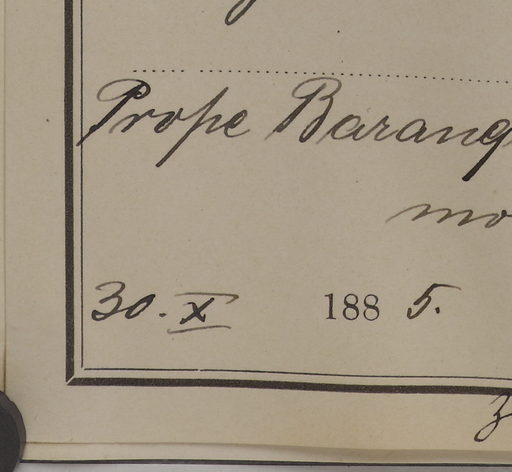 Prope Barang
mo
30. X 1885.